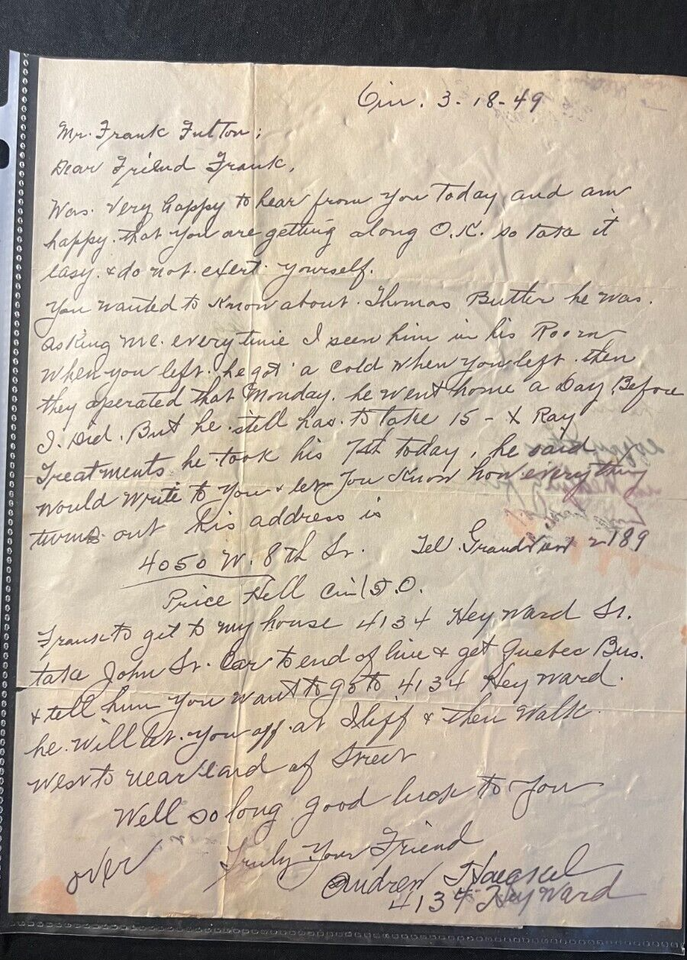 Cin. 3-18-49
Mr. Frank Fulton;
Dear Friend Frank,
Was. Very happy to hear from you Today and am
happy. that you are getting along O.K. so take it
easy. & do not. exert. yourself.
You wanted to know about. Thomas Butter he was.
asking me. everytime I seen him in his Room
When you left. he got a cold when you left. then
they operated that Monday. he went home a Day Before
I. Did. But he still has. to take 15 - X Ray
Treatments. he took his 7th today, he said
would write to You & let You Know how everything
turns out his address is
4050 W. 8th St. Tel. Grandview 2189
Price Hill Cin (5) O.
Frank to get to my house 4134 Heyward St.
take John St. Car to end of line & get Quebec Bus.
& tell him You want to go to 4134 Heyward.
he. Will let. you off. at Iliff & then Walk
West to near end of Street
Well so long good luck to You
Truly Your Friend
over Andrew
4134 Heyward